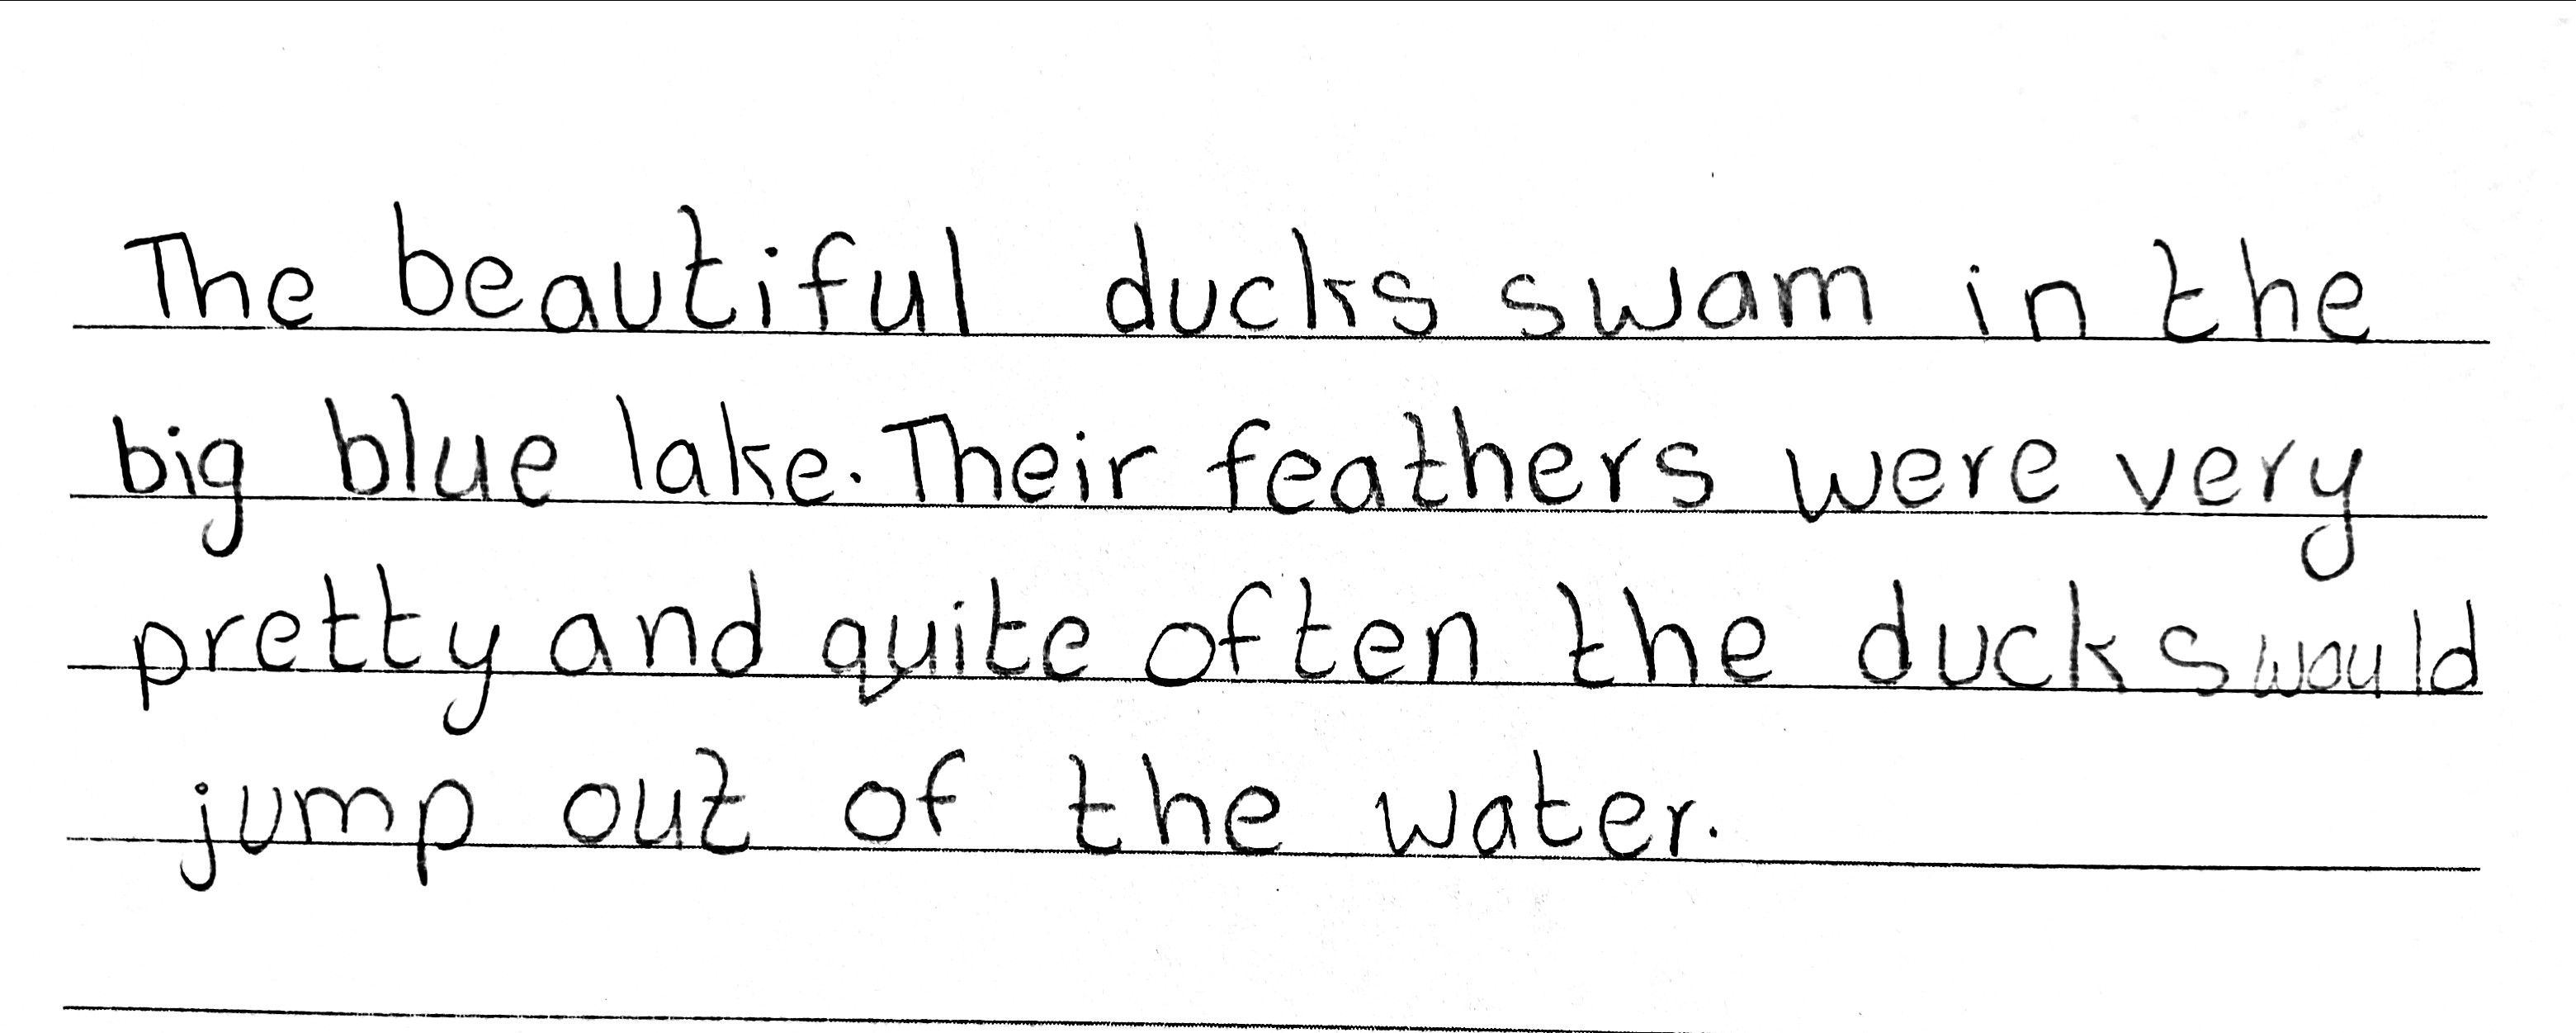 The beautiful ducks swam in the
big blue lake. Their feathers were very
pretty and quite often the ducks would
jump out of the water.